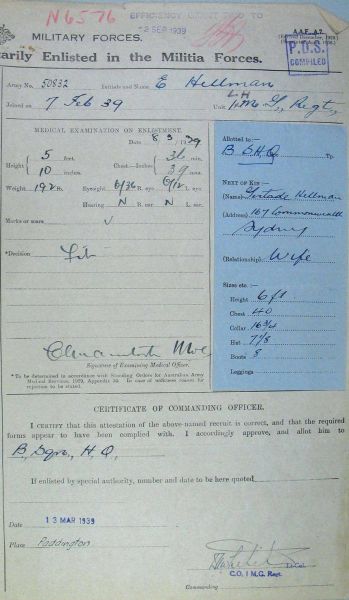 N6576
EFFICIENCY GRANT PAID TO
12 SEP 1939
MILITARY FORCES.
A.A.F. A7.
P.D.S.
COMPILED
tarily Enlisted in the Militia Forces.
Army No. 50832 Initials and Name E Hellman
Joined on 7 Feb 39 Unit 1 L.H. M.G. Regt.
MEDICAL EXAMINATION ON ENLISTMENT.
Date 8 3 1939
Height 5 feet. Chest—Inches 36 min.
10 inches. 39 max.
Weight 192 lb. Eyesight 6/36 R. eye 6/12 L. eye
Hearing N R. ear N L. ear
Marks or scars
*Decision Fit
Signature of Examining Medical Officer.
*To be determined in accordance with Standing Orders for Australian Army
Medical Services, 1929, Appendix 20. In case of unfitness reason for
rejection to be stated.
Allotted to—
B S.H.Q. Tp.
NEXT OF KIN—
(Name) Gertrude Hellman
(Address) 167 Commonwealth
Sydney
(Relationship) Wife
Sizes etc.—
Height 6 ft
Chest 40
Collar 16 3/4
Hat 7 1/8
Boots 8
Leggings
CERTIFICATE OF COMMANDING OFFICER.
I CERTIFY that this attestation of the above named recruit is correct, and that the required
forms appear to have been complied with. I accordingly approve, and allot him to
B. Sqn., H.Q.
If enlisted by special authority, number and date to be here quoted
Date 13 MAR 1939
Place Paddington
Lt Col
C.O. 1 M.G. Regt.
Commanding